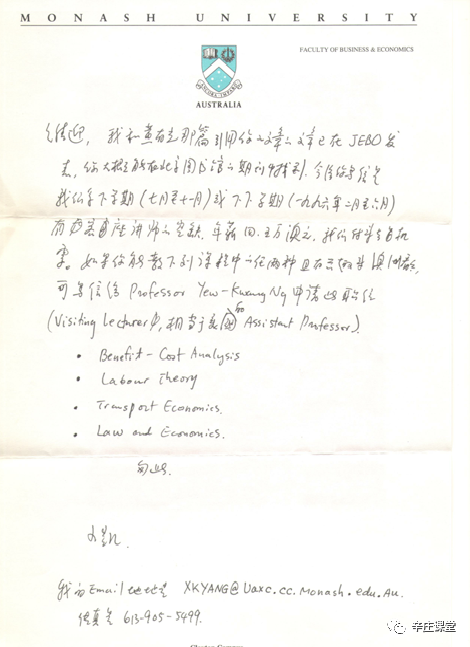 MONASH UNIVERSITY
FACULTY OF BUSINESS & ECONOMICS
ANCORA IMPARO
AUSTRALIA
我和黄有光那篇引用你的文章的文章已在 JEBO 发
表，你大概能在北京图书馆的期刊中找到。今给你写信是
我们系下学期（七月至十一月）或下下学期（一九九六年二月至六月）
有 客座讲师的空缺，年薪 四、五万澳元，
如果你能教下列课程中的任两种且有兴趣来澳洲
可写信给 Professor Yew-Kwang Ng 申请此职位
(Visiting Lecturer, 相当于美国的 Assistant Professor).
• Benefit-Cost Analysis
• Labour Theory
• Transport Economics.
• Law and Economics.
小凯
我的 Email 地址是 XKYANG@Vaxc.cc.monash.edu.Au.
传真是 613-905-5499.
辛庄课堂